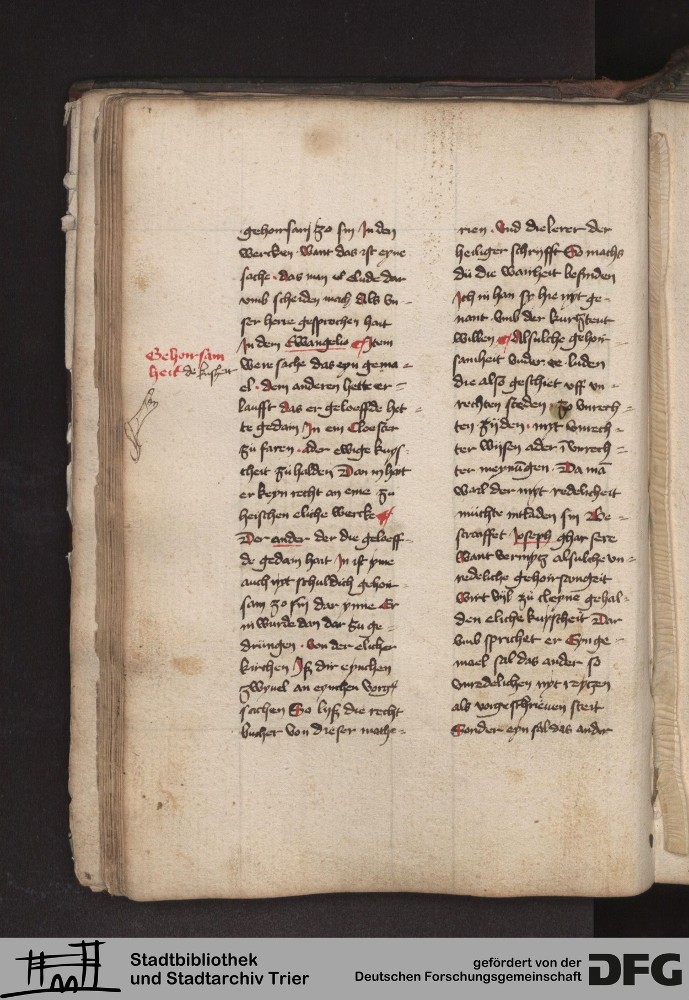 Gehoirsam
heit de kusheit
gehoirsam zo sin In den
wercken · Want das ist eyne
sache · das man el lude dar
vmb scheiden mach Als vn-
ser herre gesprochen hait
In dem Ewangelio Item
were sache das eyn gema-
el · dem anderen hette er-
laufft das er geloeffde het-
te gedain In ein Cloester
zu faren · ader ewige kuys-
cheit zu halden Dan in hait
er keyn recht an eme zu
heischen eliche wercke
Der ander der die geloeff-
de gedain hait · in ist yme
auch nyt schuldich gehoir-
sam zo sin dar ynne Er
in wurde dan dar zu ge-
drungen · von der elicher
kirchen Is dir eynchen
zwyuel an eynchen vorge
sachen So lys die recht
bucher von dieser mathe-
rien · Vnd die lerer der
heiliger schryfft So machs
du die warheit befinden
Ich in han sy hie nyt ge-
nant · vmb der kurtzheit
willen Alsulche gehoir-
samheit vnder ee luden
die also geschiet vff vn-
rechten steden · zo vnrech-
ten zyden · myt vnrech-
ter wijsen ader i vnrech-
ter meynugen · Da ma
wail der myt redelicheit
muchte intladen sin Be-
straiffet Joseph ghar sere
Want vermytz alsulche vn-
redeliche gehoirsamgeit
Wirt vyl zu cleyne gehal-
den eliche kuyscheit Dar
vmb sprichet er Eyn ge-
mael sal das ander so
vnredelichen nyt reytzen
als vorgeschrieuen steit
Sonder eyn sal das ander
Stadtbibliothek
und Stadtarchiv Trier
gefördert von der
Deutschen Forschungsgemeinschaft
DFG